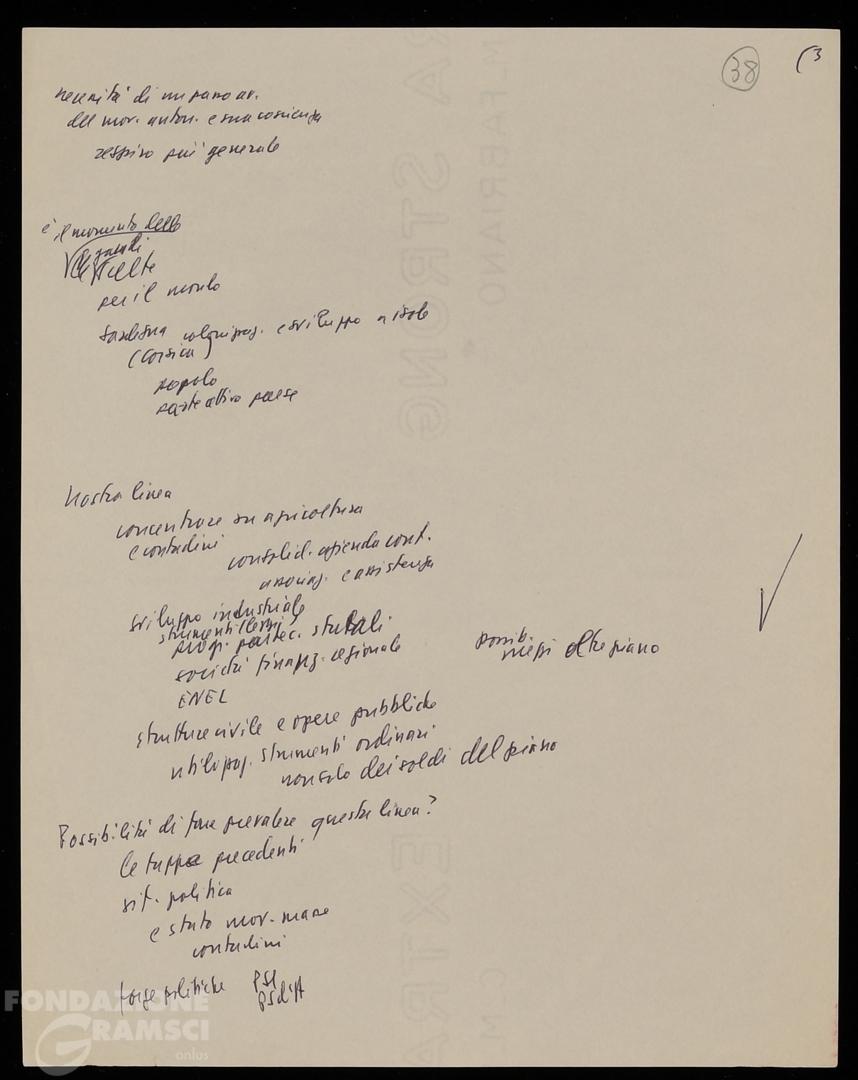 38 (3
necessità di un passo av.
del mov. auton. e sua coscienza
respiro più generale
è il momento delle
grandi
scelte
per il mondo
Sardegna colonizzaz. e sviluppo a isole
(Corsica)
popolo
parte attiva paese
Nostra linea
concentrare su agricoltura
e contadini
consolid. azienda cont.
associaz. e assistenza
sviluppo industriale
strumenti (leggi)
progr. partec. statali.
società finanz. regionale
possib.
mezzi oltre piano
ENEL
strutture civile e opere pubbliche
utilizzaz. strumenti ordinari
non solo dei soldi del piano
Possibilità di fare prevalere questa linea?
le tappe precedenti
sit. politica
e stato mov. masse
contadini
forze politiche PSI
PSd'A
FONDAZIONE
GRAMSCI
onlus
EXTRA STRONG
C.M. FABRIANO